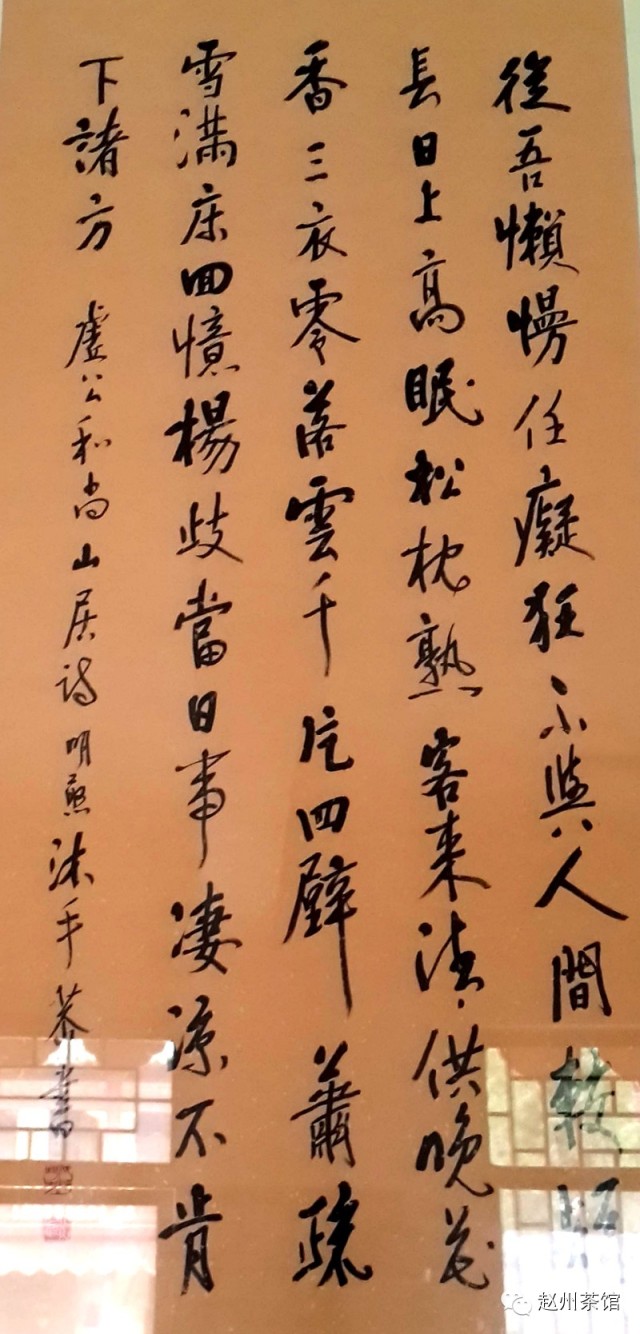 從吾懶慢任癡狂不與人間較短
長日上高眠松枕熟客來清供晚花
香三衣零落雲千片四壁蕭疏
雪滿床囬憶楊歧當日事凄凉不肯
下諸方 虛公和尚山居詩 明 沐手恭書
赵州茶馆